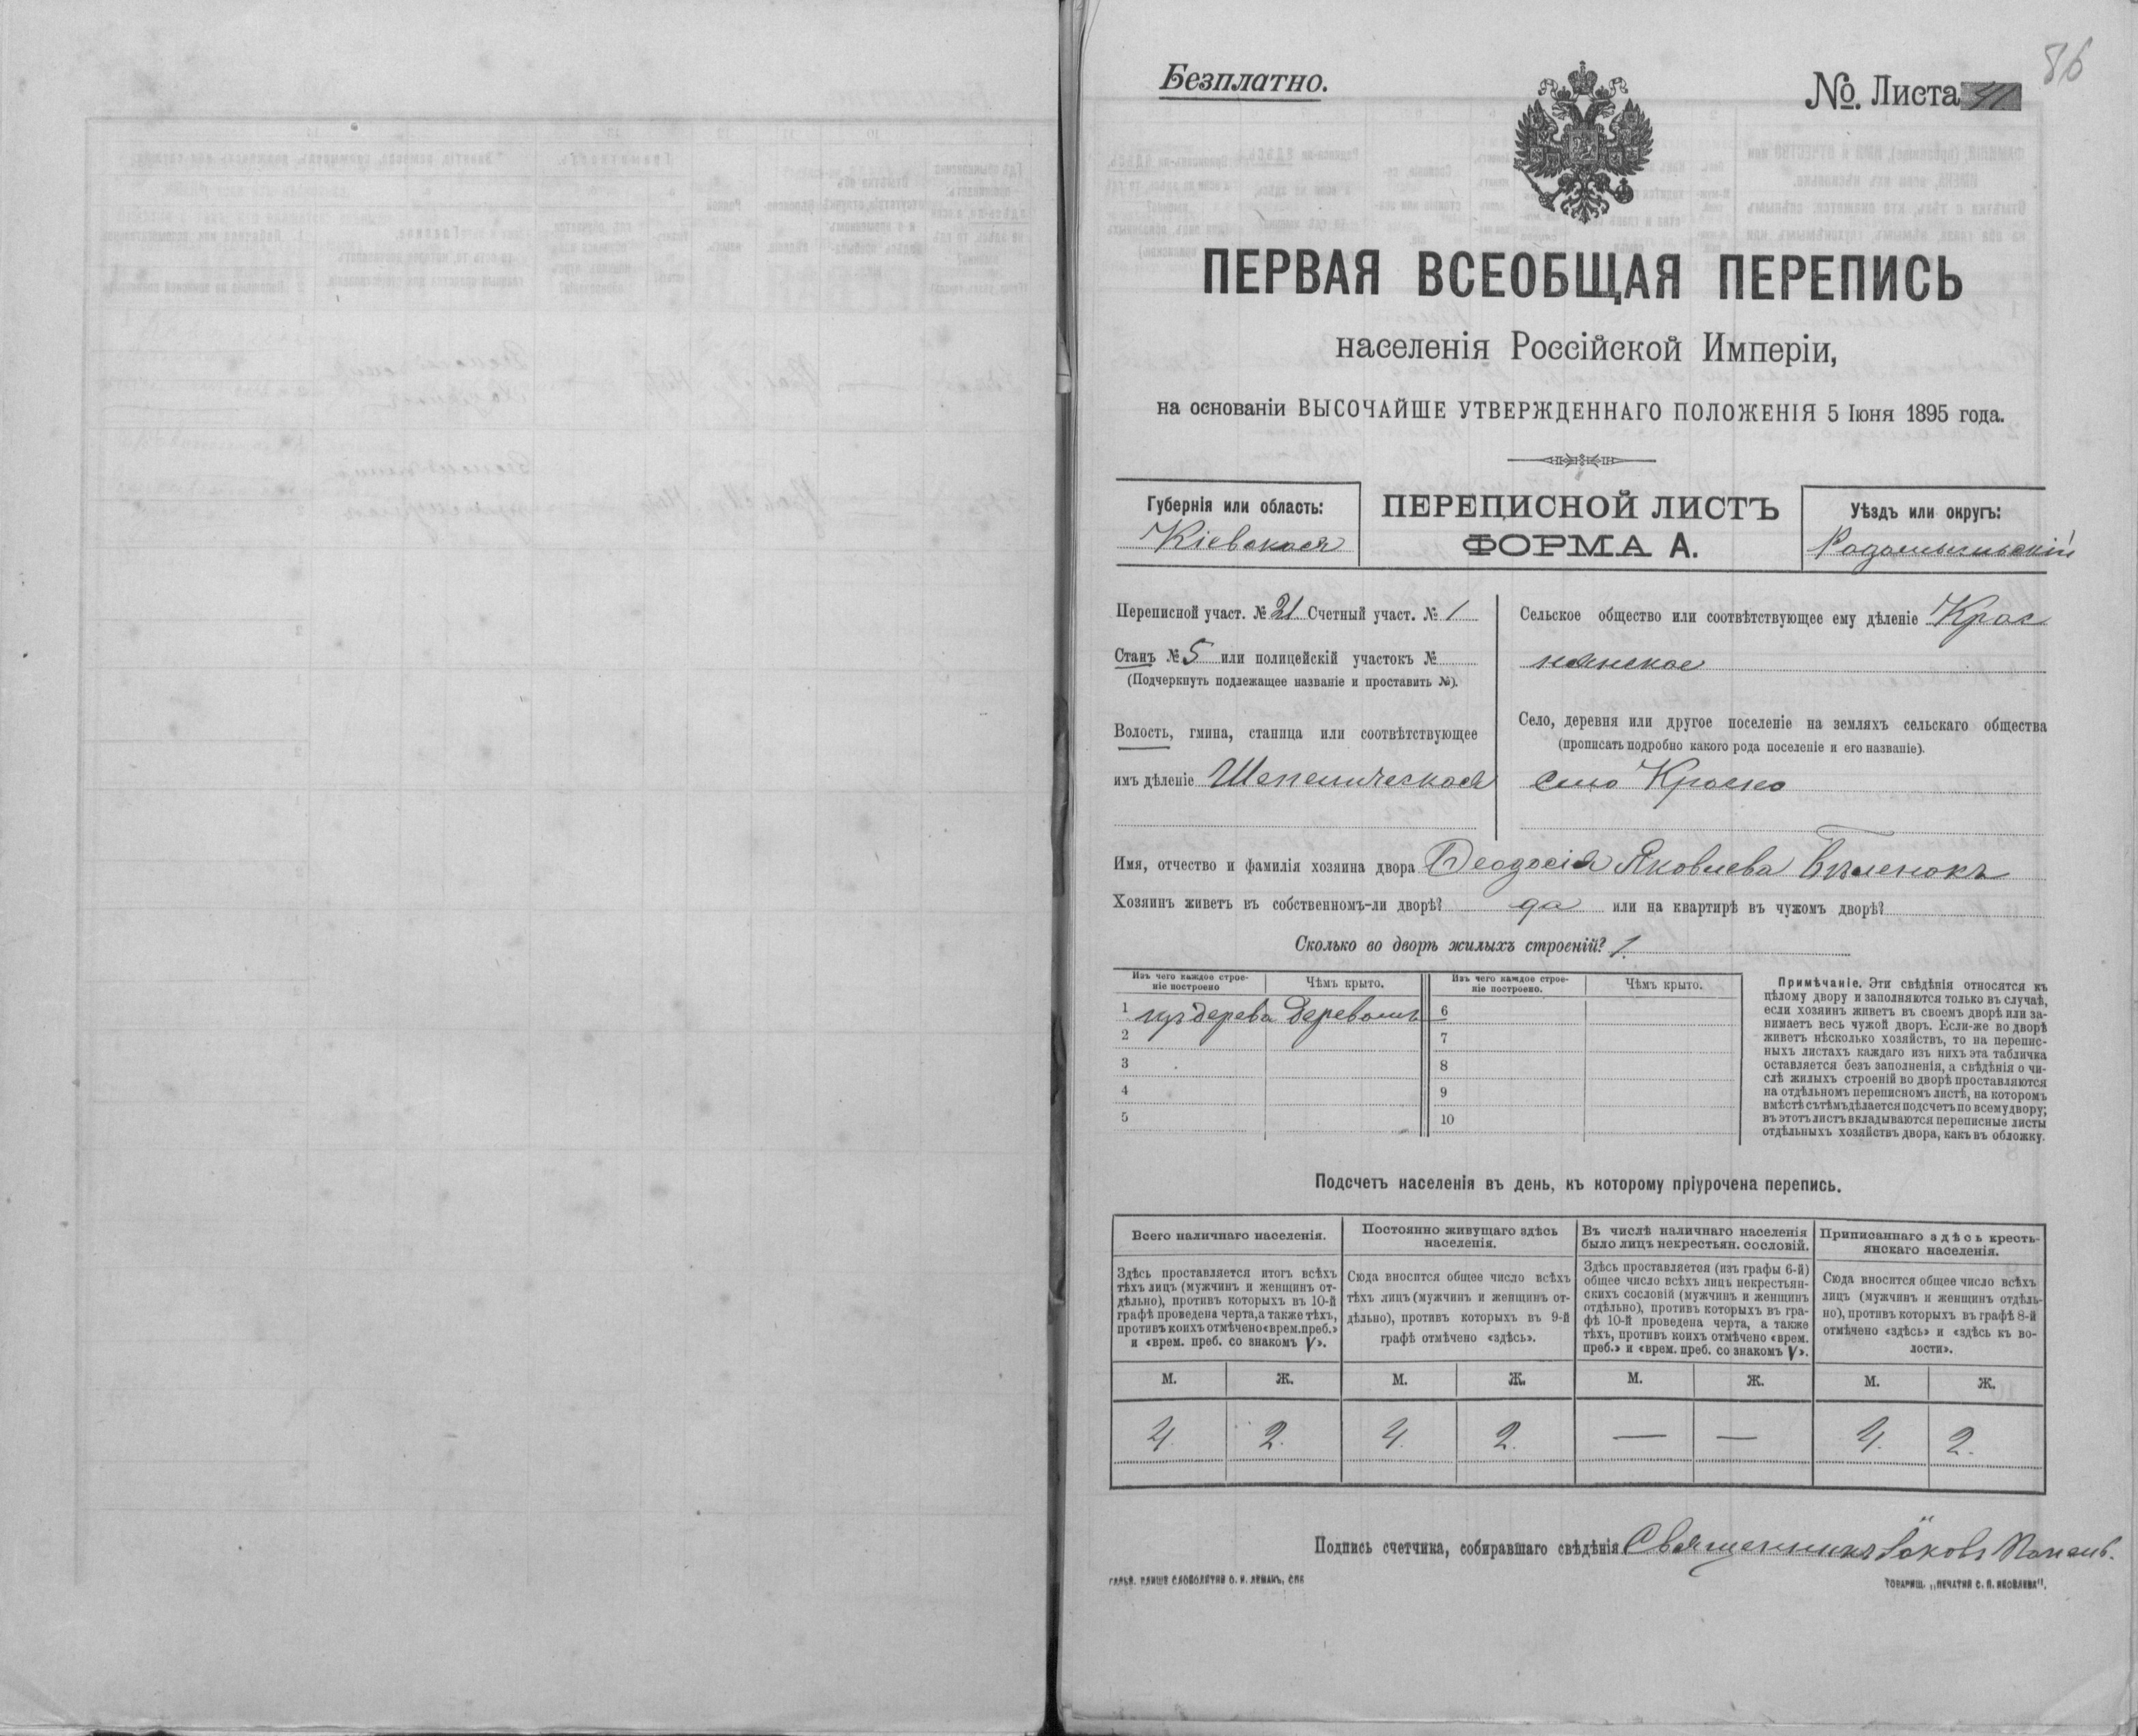 86
Безплатно.
№. Листа 41
ПЕРВАЯ ВСЕОБЩАЯ ПЕРЕПИСЬ
населенія Россійской Имперіи,
на основаніи ВЫСОЧАЙШЕ УТВЕРЖДЕННАГО ПОЛОЖЕНІЯ 5 Іюня 1895 года.
Губернія или область:
Кіевская
ПЕРЕПИСНОЙ ЛИСТЪ
ФОРМА А.
Уѣздъ или округъ:
Радомысльскій
Переписной участ. № 21 Счетный участ. № 1
Станъ № 5 или полицейскій участокъ №
(Подчеркнуть подлежащее названіе и проставить №).
Волость, гмина, станица или соотвѣтствующее
имъ дѣленіе Шепеличская
Сельское общество или соотвѣтствующее ему дѣленіе Крас
нянское
Село, деревня или другое поселеніе на земляхъ сельскаго общества
(прописать подробно какого рода поселеніе и его названіе).
село Красно
Имя, отчество и фамилія хозяина двора Ѳеодосія Яковлева Бѣленокъ
Хозяинъ живетъ въ собственномъ-ли дворѣ? да или на квартирѣ въ чужомъ дворѣ?
Сколько во дворѣ жилыхъ строеній? 1.
Изъ чего каждое строе-
ніе построено
Чѣмъ крыто.
Изъ чего каждое строе-
ніе построено.
Чѣмъ крыто.
1 изъ дерева деревомъ 6
2 7
3 8
4 9
5 10
Примѣчаніе. Эти свѣдѣнія относятся къ
цѣлому двору и заполняются только въ случаѣ,
если хозяинъ живетъ въ своемъ дворѣ или за-
нимаетъ весь чужой дворъ. Если-же во дворѣ
живетъ нѣсколько хозяйствъ, то на перепис-
ныхъ листахъ каждаго изъ нихъ эта табличка
оставляется безъ заполненія, а свѣдѣнія о чи-
слѣ жилыхъ строеній во дворѣ проставляются
на отдѣльномъ переписномъ листѣ, на которомъ
вмѣстѣ съ тѣмъ дѣлается подсчетъ по всему двору;
въ этотъ листъ вкладываются переписные листы
отдѣльныхъ хозяйствъ двора, какъ въ обложку.
Подсчетъ населенія въ день, къ которому пріурочена перепись.
Всего наличнаго населенія.
Здѣсь проставляется итогъ всѣхъ
тѣхъ лицъ (мужчинъ и женщинъ от-
дѣльно), противъ которыхъ въ 10-й
графѣ проведена черта, а также тѣхъ,
противъ коихъ отмѣчено «врем. преб.»
и «врем. преб. со знакомъ V».
Постоянно живущаго здѣсь
населенія.
Сюда вносится общее число всѣхъ
тѣхъ лицъ (мужчинъ и женщинъ от-
дѣльно), противъ которыхъ въ 9-й
графѣ отмѣчено «здѣсь».
Въ числѣ наличнаго населенія
было лицъ некрестьян. сословій.
Здѣсь проставляется (изъ графы 6-й)
общее число всѣхъ лицъ некрестьян-
скихъ сословій (мужчинъ и женщинъ
отдѣльно), противъ которыхъ въ гра-
фѣ 10-й проведена черта, а также
тѣхъ, противъ коихъ отмѣчено «врем.
преб.» и «врем. преб. со знакомъ V».
Приписаннаго здѣсь кресть-
янскаго населенія.
Сюда вносится общее число всѣхъ
лицъ (мужчинъ и женщинъ отдѣль-
но), противъ которыхъ въ графѣ 8-й
отмѣчено «здѣсь» и «здѣсь къ во-
лости».
М. Ж. М. Ж. М. Ж. М. Ж.
4. 2. 4. 2. — — 4. 2.
Подпись счетчика, собиравшаго свѣдѣнія Священникъ Іаковъ
ГАЛЬВ. КЛИШЕ СЛОВОЛИТНИ О. И. ЛЕМАНЪ, СПБ
ТОВАРИЩ. „ПЕЧАТНЯ С. П. ЯКОВЛЕВА".